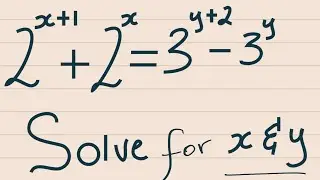 2^{x+1} + 2^x = 3^{y+2} - 3^y
Solve for x & y